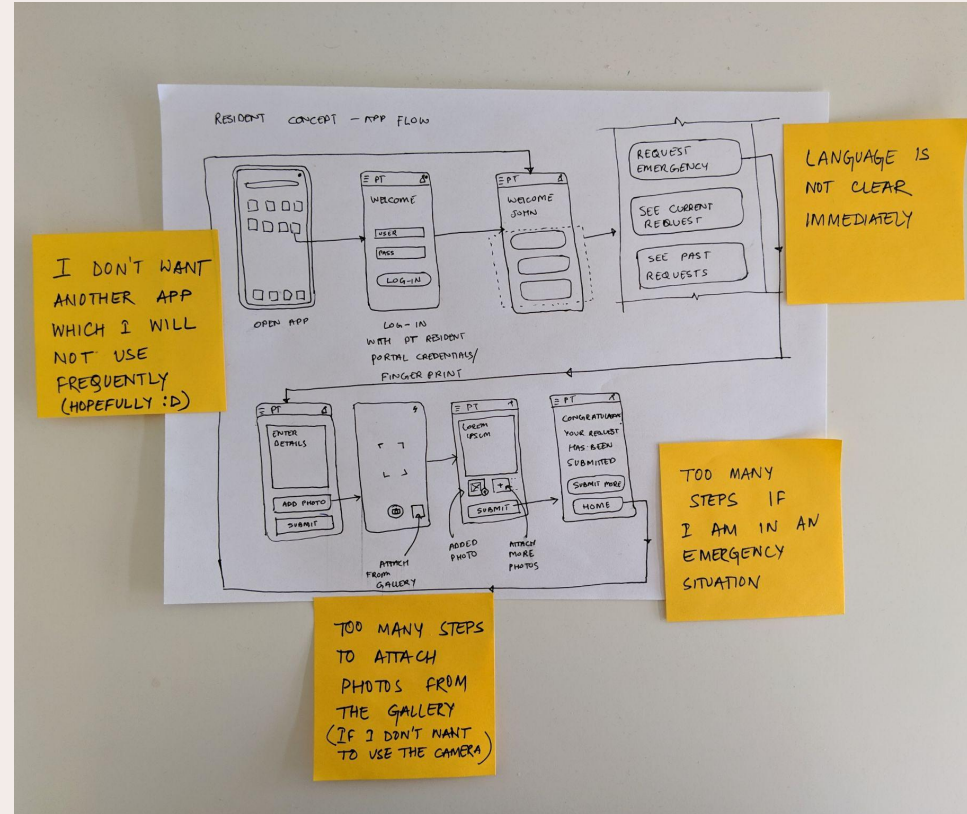 RESIDENT CONCEPT - APP FLOW
OPEN APP
≡ PT
WELCOME
USER
PASS
LOG-IN
LOG-IN
WITH PT RESIDENT
PORTAL CREDENTIALS/
FINGER PRINT
≡ PT
WELCOME
JOHN
REQUEST
EMERGENCY
SEE CURRENT
REQUEST
SEE PAST
REQUESTS
LANGUAGE IS
NOT CLEAR
IMMEDIATELY
I DON'T WANT
ANOTHER APP
WHICH I WILL
NOT USE
FREQUENTLY
(HOPEFULLY :D)
≡ PT
ENTER
DETAILS
ADD PHOTO
SUBMIT
ATTACH
FROM
GALLERY
≡ PT
LOREM
IPSUM
+
SUBMIT
ADDED
PHOTO
ATTACH
MORE
PHOTOS
≡ PT
CONGRATULATION
YOUR REQUEST
HAS BEEN
SUBMITTED
SUBMIT MORE
HOME
TOO MANY
STEPS IF
I AM IN AN
EMERGENCY
SITUATION
TOO MANY STEPS
TO ATTACH
PHOTOS FROM
THE GALLERY
(IF I DON'T WANT
TO USE THE CAMERA)